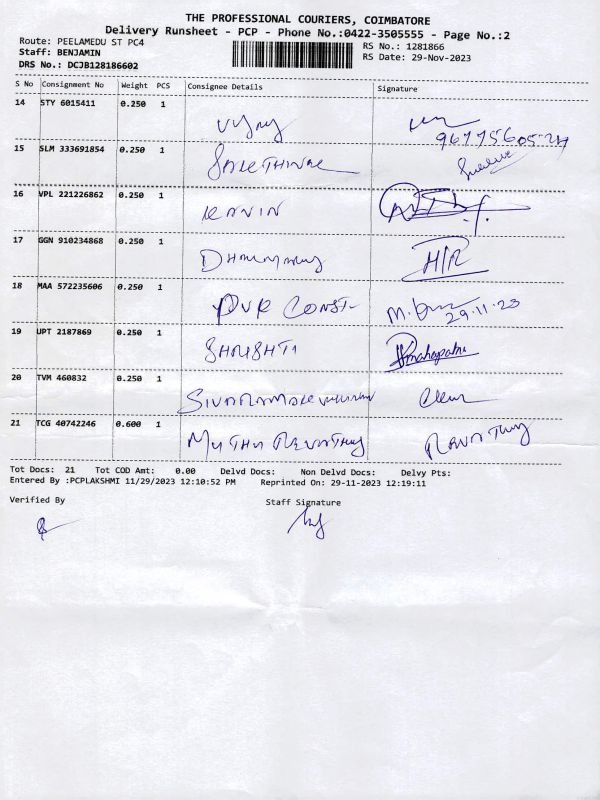 THE PROFESSIONAL COURIERS, COIMBATORE
Delivery Runsheet - PCP - Phone No.:0422-3505555 - Page No.:2
Route: PEELAMEDU ST PC4
Staff: BENJAMIN
DRS No.: DCJB128186602
RS No.: 1281866
RS Date: 29-Nov-2023
S No Consignment No Weight PCS Consignee Details Signature
14 STY 6015411 0.250 1 Vijay
15 SLM 333691854 0.250 1
16 VPL 221226862 0.250 1 KAVIN
17 GGN 910234868 0.250 1 H/R
18 MAA 572235606 0.250 1 PVR CONST- 29.11.23
19 UPT 2187869 0.250 1 SHRISHTI
20 TVM 460832 0.250 1
21 TCG 40742246 0.600 1 MUTHU REVATHY REVATHY
Tot Docs: 21 Tot COD Amt: 0.00 Delvd Docs: Non Delvd Docs: Delvy Pts:
Entered By :PCPLAKSHMI 11/29/2023 12:10:52 PM Reprinted On: 29-11-2023 12:19:11
Verified By Staff Signature